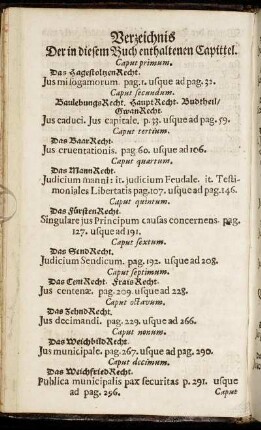 Verzeichnis
Der in diesem Buch enthaltenen Capittel.
Caput primum.
Das HagestoltzenRecht.
Jus misogamorum. pag. 1. usque ad pag. 32.
Caput secundum.
BaulebungsRecht. HauptRecht. Budtheil/
GwanRecht.
Jus caduci. Jus capitale. p. 33. usque ad pag. 59.
Caput tertium.
Das BaarRecht.
Jus cruentationis. pag 60. usque ad 106.
Caput quartum.
Das MannRecht.
Judicium manni: it. judicium Feudale. it. Testi-
moniales Libertatis pag. 107. usque ad pag. 146.
Caput quintum.
Das FürstenRecht.
Singulare jus Principum causas concernens. pag.
127. usque ad 191.
Caput sextum.
Das SendRecht.
Judicium Sendicum. pag. 192. usque ad 208.
Caput septimum.
Das CentRecht. FraisRecht.
Jus centenæ. pag. 209. usque ad 228.
Caput octavum.
Das ZehndRecht.
Jus decimandi. pag. 229. usque ad 266.
Caput nonum.
Das WeichbildRecht.
Jus municipale. pag. 267. usque ad pag. 290.
Caput decimum.
Das WeichfriedRecht.
Publica municipalis pax securitas p. 291. usque
ad pag. 296.
Caput